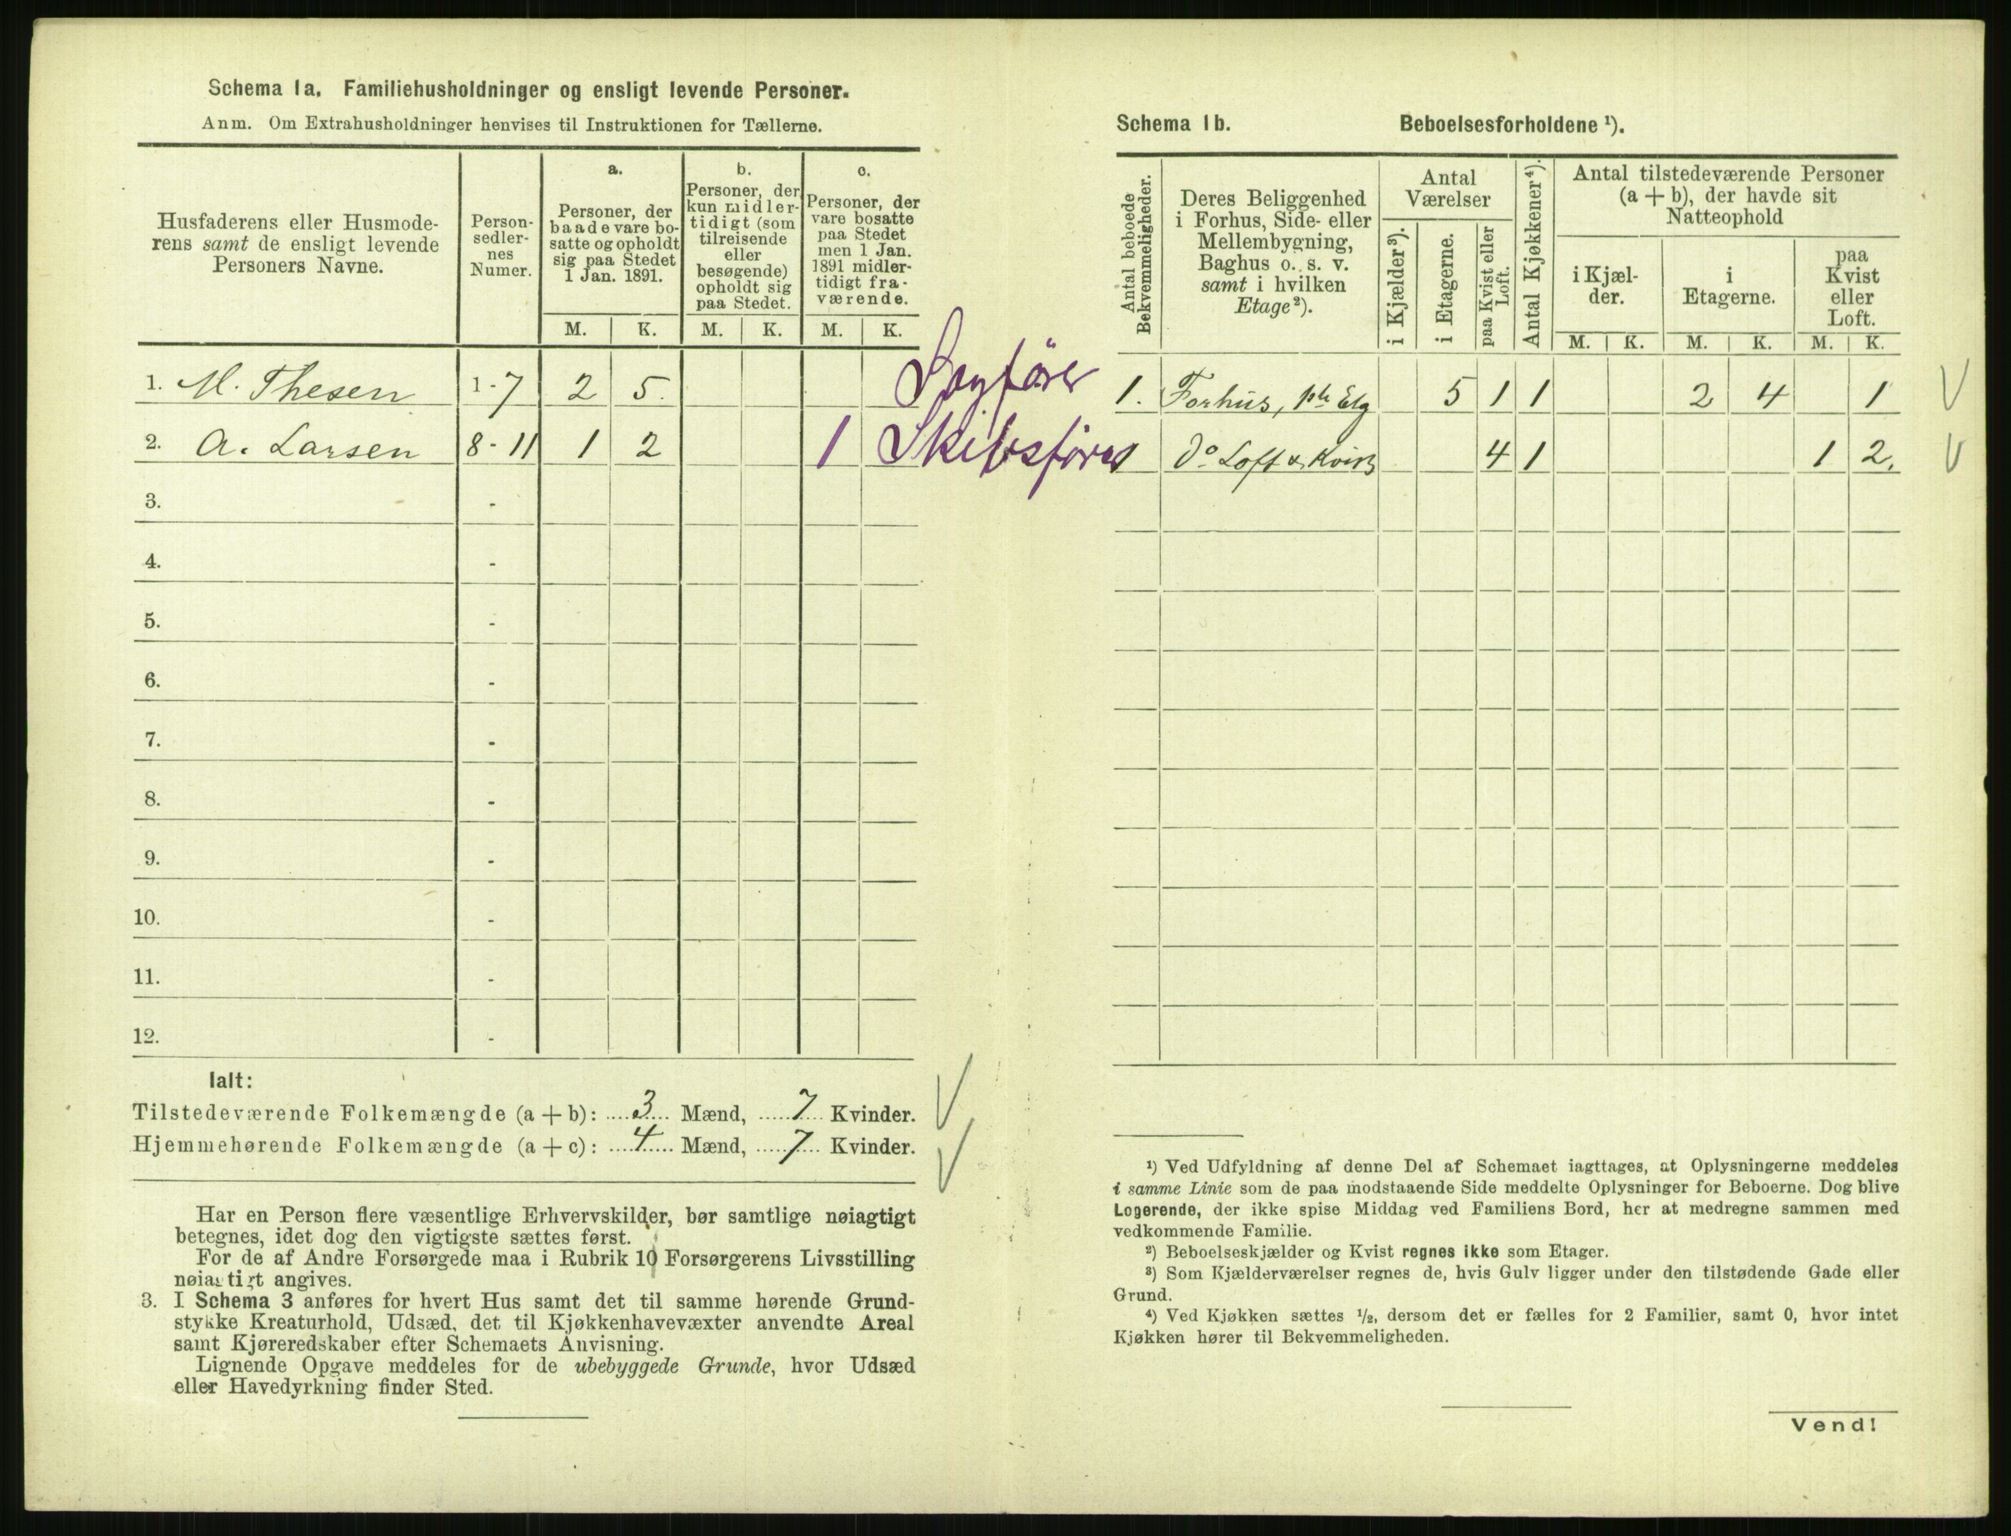 Schema 1a. Familiehusholdninger og ensligt levende Personer.
Anm. Om Extrahusholdninger henvises til Instruktionen for Tællerne.
Husfaderens eller Husmode-
rens samt de ensligt levende
Personers Navne.
Person-
sedler-
nes
Numer.
a.
Personer, der
baade vare bo-
satte og opholdt
sig paa Stedet
1 Jan. 1891.
b.
Personer, der
kun midler-
tidigt (som
tilreisende
eller
besøgende)
opholdt sig
paa Stedet.
c.
Personer, der
vare bosatte
paa Stedet
men 1 Jan.
1891 midler-
tidigt fra-
værende.
M. K. M. K. M. K.
1. M. Thesen 1-7 2 5. Sagfører
2. A. Larsen 8-11 1 2 1 Skibsfører
3. -
4. -
5. -
6. -
7. -
8. -
9. -
10. -
11. -
12. -
Ialt:
Tilstedeværende Folkemængde (a + b): 3 Mænd, 7 Kvinder.
Hjemmehørende Folkemængde (a + c): 4 Mænd, 7 Kvinder.
Har en Person flere væsentlige Erhvervskilder, bør samtlige nøiagtigt
betegnes, idet dog den vigtigste sættes først.
For de af Andre Forsørgede maa i Rubrik 10 Forsørgerens Livsstilling
nøiagtigt angives.
3. I Schema 3 anføres for hvert Hus samt det til samme hørende Grund-
stykke Kreaturhold, Udsæd, det til Kjøkkenhavevæxter anvendte Areal
samt Kjøreredskaber efter Schemaets Anvisning.
Lignende Opgave meddeles for de ubebyggede Grunde, hvor Udsæd
eller Havedyrkning finder Sted.
Schema 1b. Beboelsesforholdene ¹).
Antal beboede
Bekvemmeligheder.
Deres Beliggenhed
i Forhus, Side- eller
Mellembygning,
Baghus o. s. v.
samt i hvilken
Etage ²).
Antal
Værelser
i Kjælder ³).
i Etagerne.
paa Kvist eller
Loft.
Antal Kjøkkener ⁴).
Antal tilstedeværende Personer
(a + b), der havde sit
Natteophold
i Kjæl-
der.
i
Etagerne.
paa
Kvist
eller
Loft.
M. K. M. K. M. K.
1. Forhus, 1ste Etg 5 1 1 2 4 1
1 Do Loft & Kvist 4 1 1 2.
¹) Ved Udfyldning af denne Del af Schemaet iagttages, at Oplysningerne meddeles
i samme Linie som de paa modstaaende Side meddelte Oplysninger for Beboerne. Dog blive
Logerende, der ikke spise Middag ved Familiens Bord, her at medregne sammen med
vedkommende Familie.
²) Beboelseskjælder og Kvist regnes ikke som Etager.
³) Som Kjælderværelser regnes de, hvis Gulv ligger under den tilstødende Gade eller
Grund.
⁴) Ved Kjøkken sættes ½, dersom det er fælles for 2 Familier, samt 0, hvor intet
Kjøkken hører til Bekvemmeligheden.
Vend!